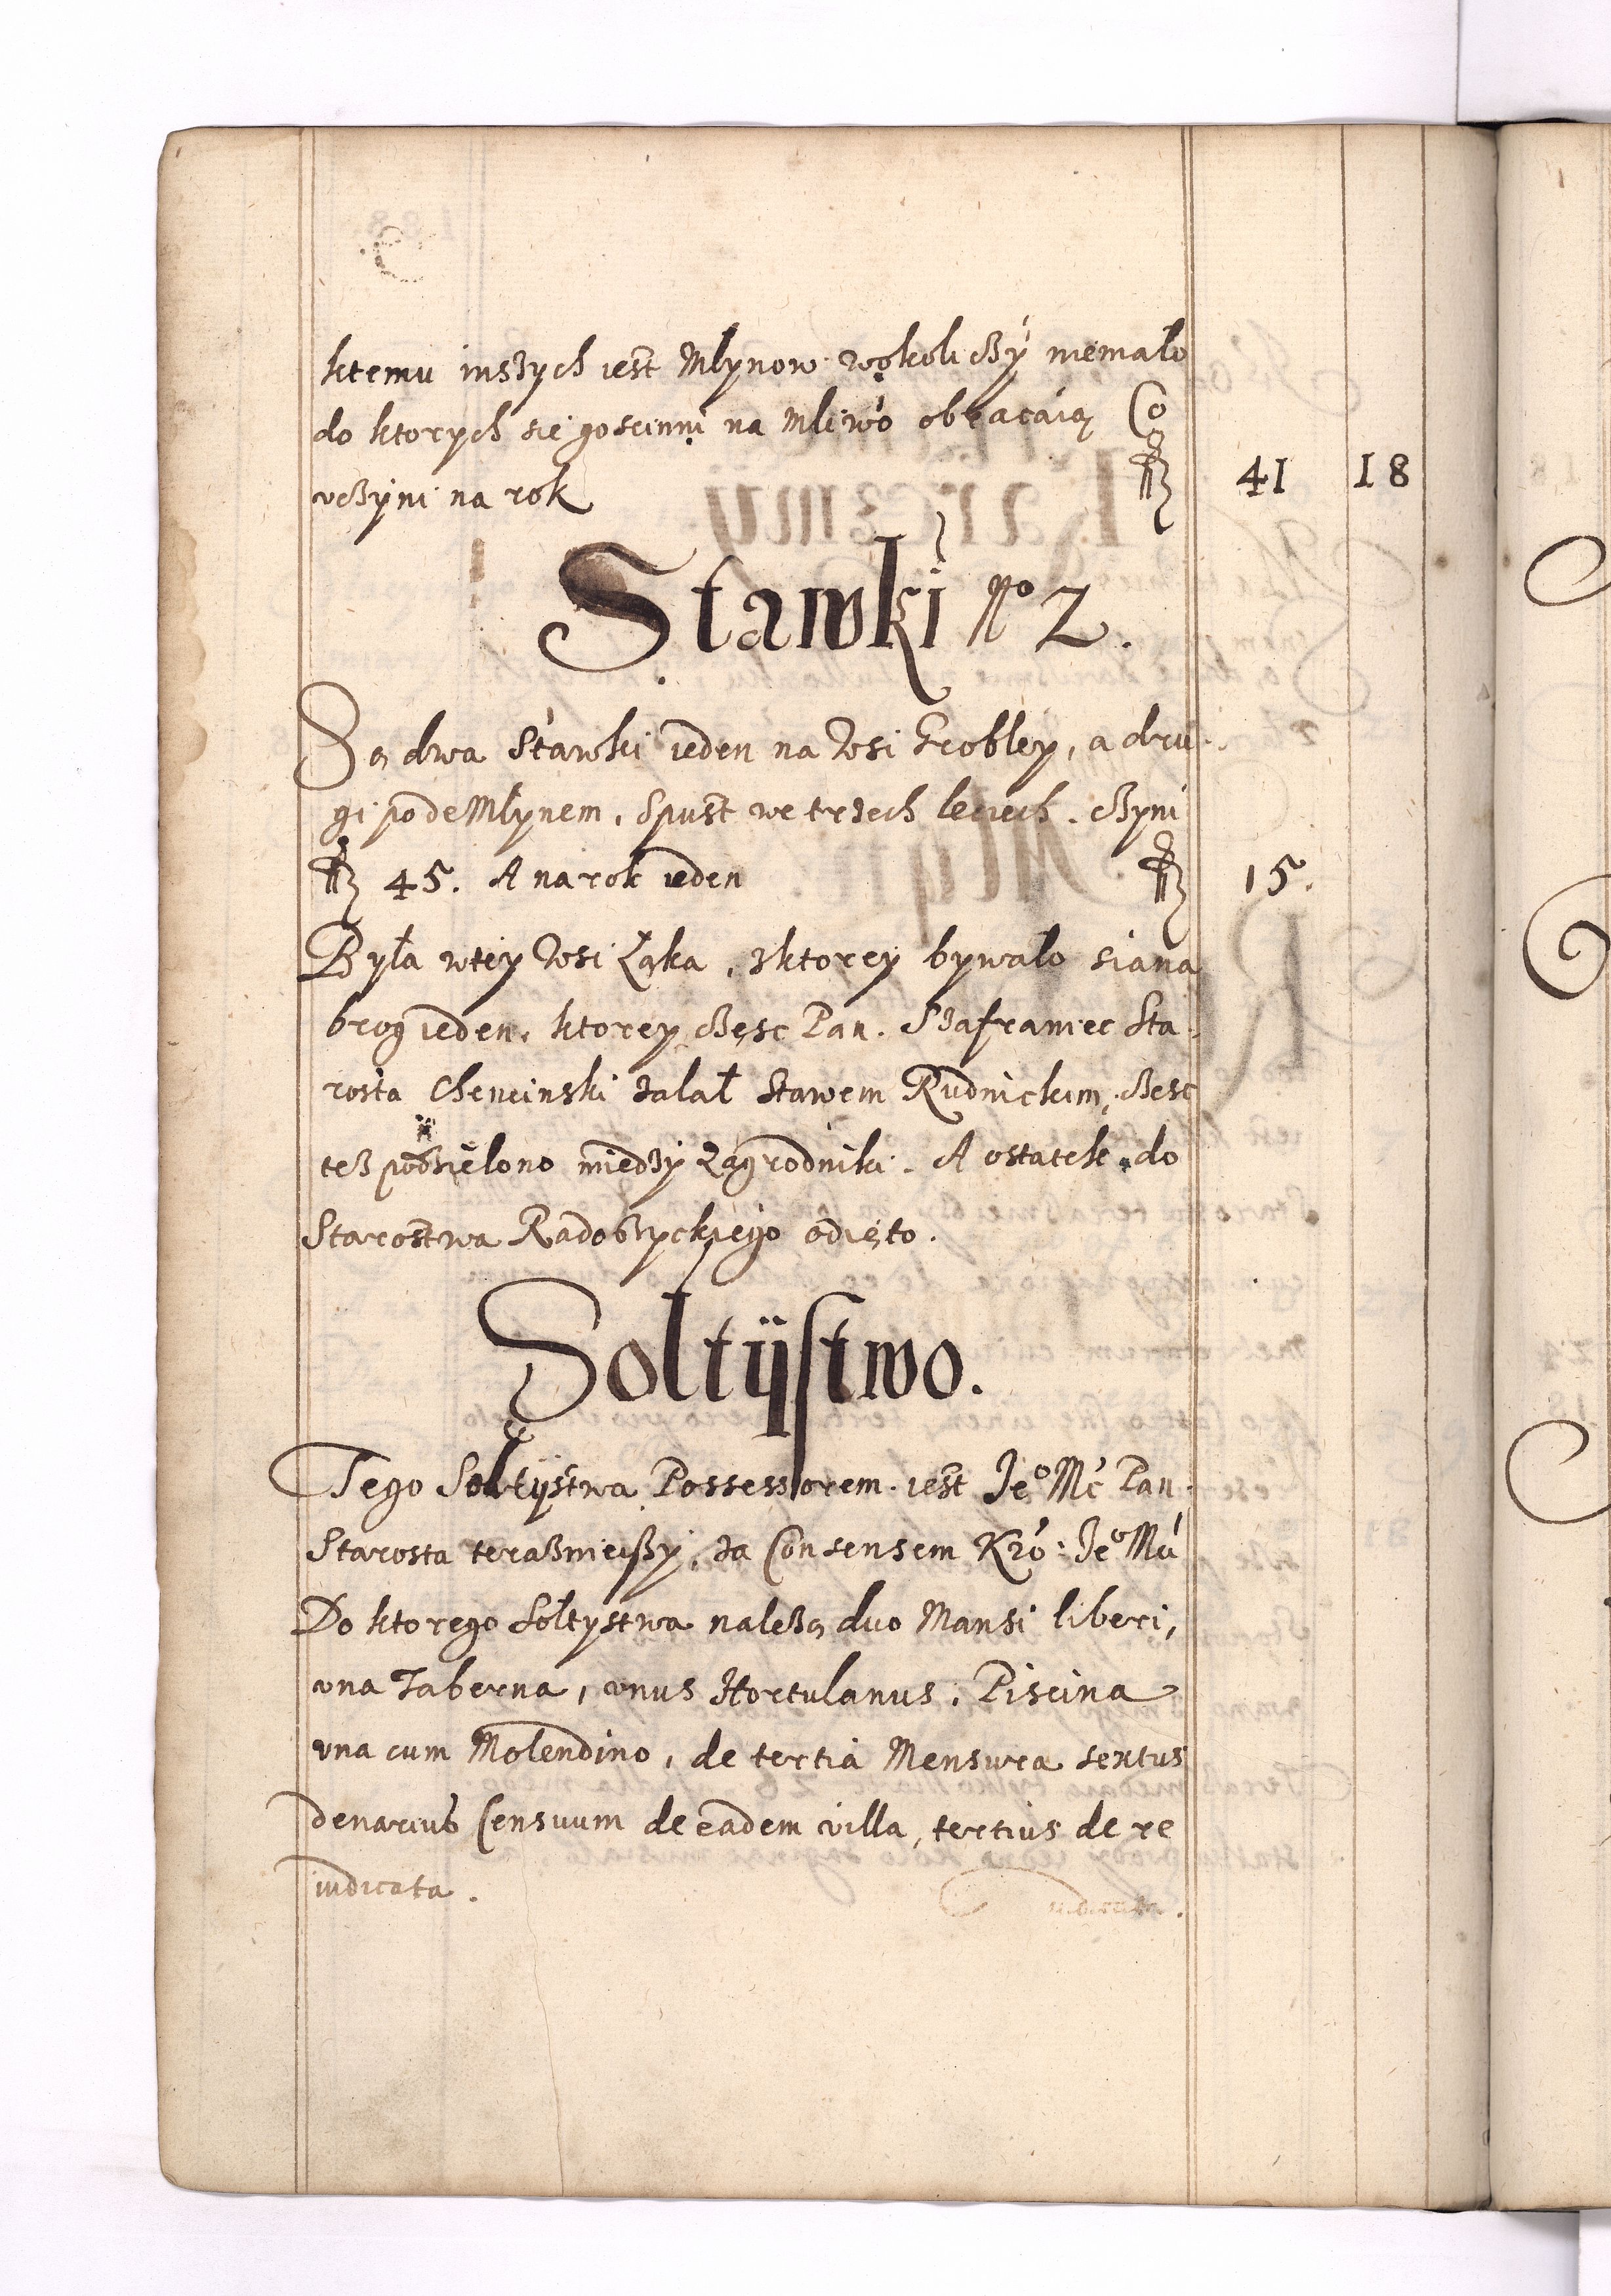 ktemu inszych iest Młynow wokoliczy niemało
do ktorych sie goscinni na Mliwo obracaią Co
vczyni na rok fl 41 18
Stawki No 2.
Są dwa Stawki ieden na Wsi Grobley, a dru-
gi pode Młynem. Spust we trzech leciech. czyni
fl 45. A na rok ieden fl 15.
Była wtey Wsi Łąka, zktorey bywało siana
brog ieden. ktorey częsc Pan. Szafraniec Sta-
rosta Chencinski zalał Stawem Rudnickim, częsc
tesz podzielono miedzy Zagrodniki. A ostatek do
Starostwa Radoszyckiego odięto.
Soltÿstwo.
Tego Soltÿstwa Possessorem. iest Jeo Mć Pan.
Starosta teraznieiszy, za Consensem Kró: Jeo Mći
Do ktorego Sołtystwa należą duo Mansi liberi,
vna Taberna, vnus Hortulanus. Piscina
vna cum Molendino, de tertia Mensura sextus
denarius Censuum de eadem villa, tertius de re
iudicata.